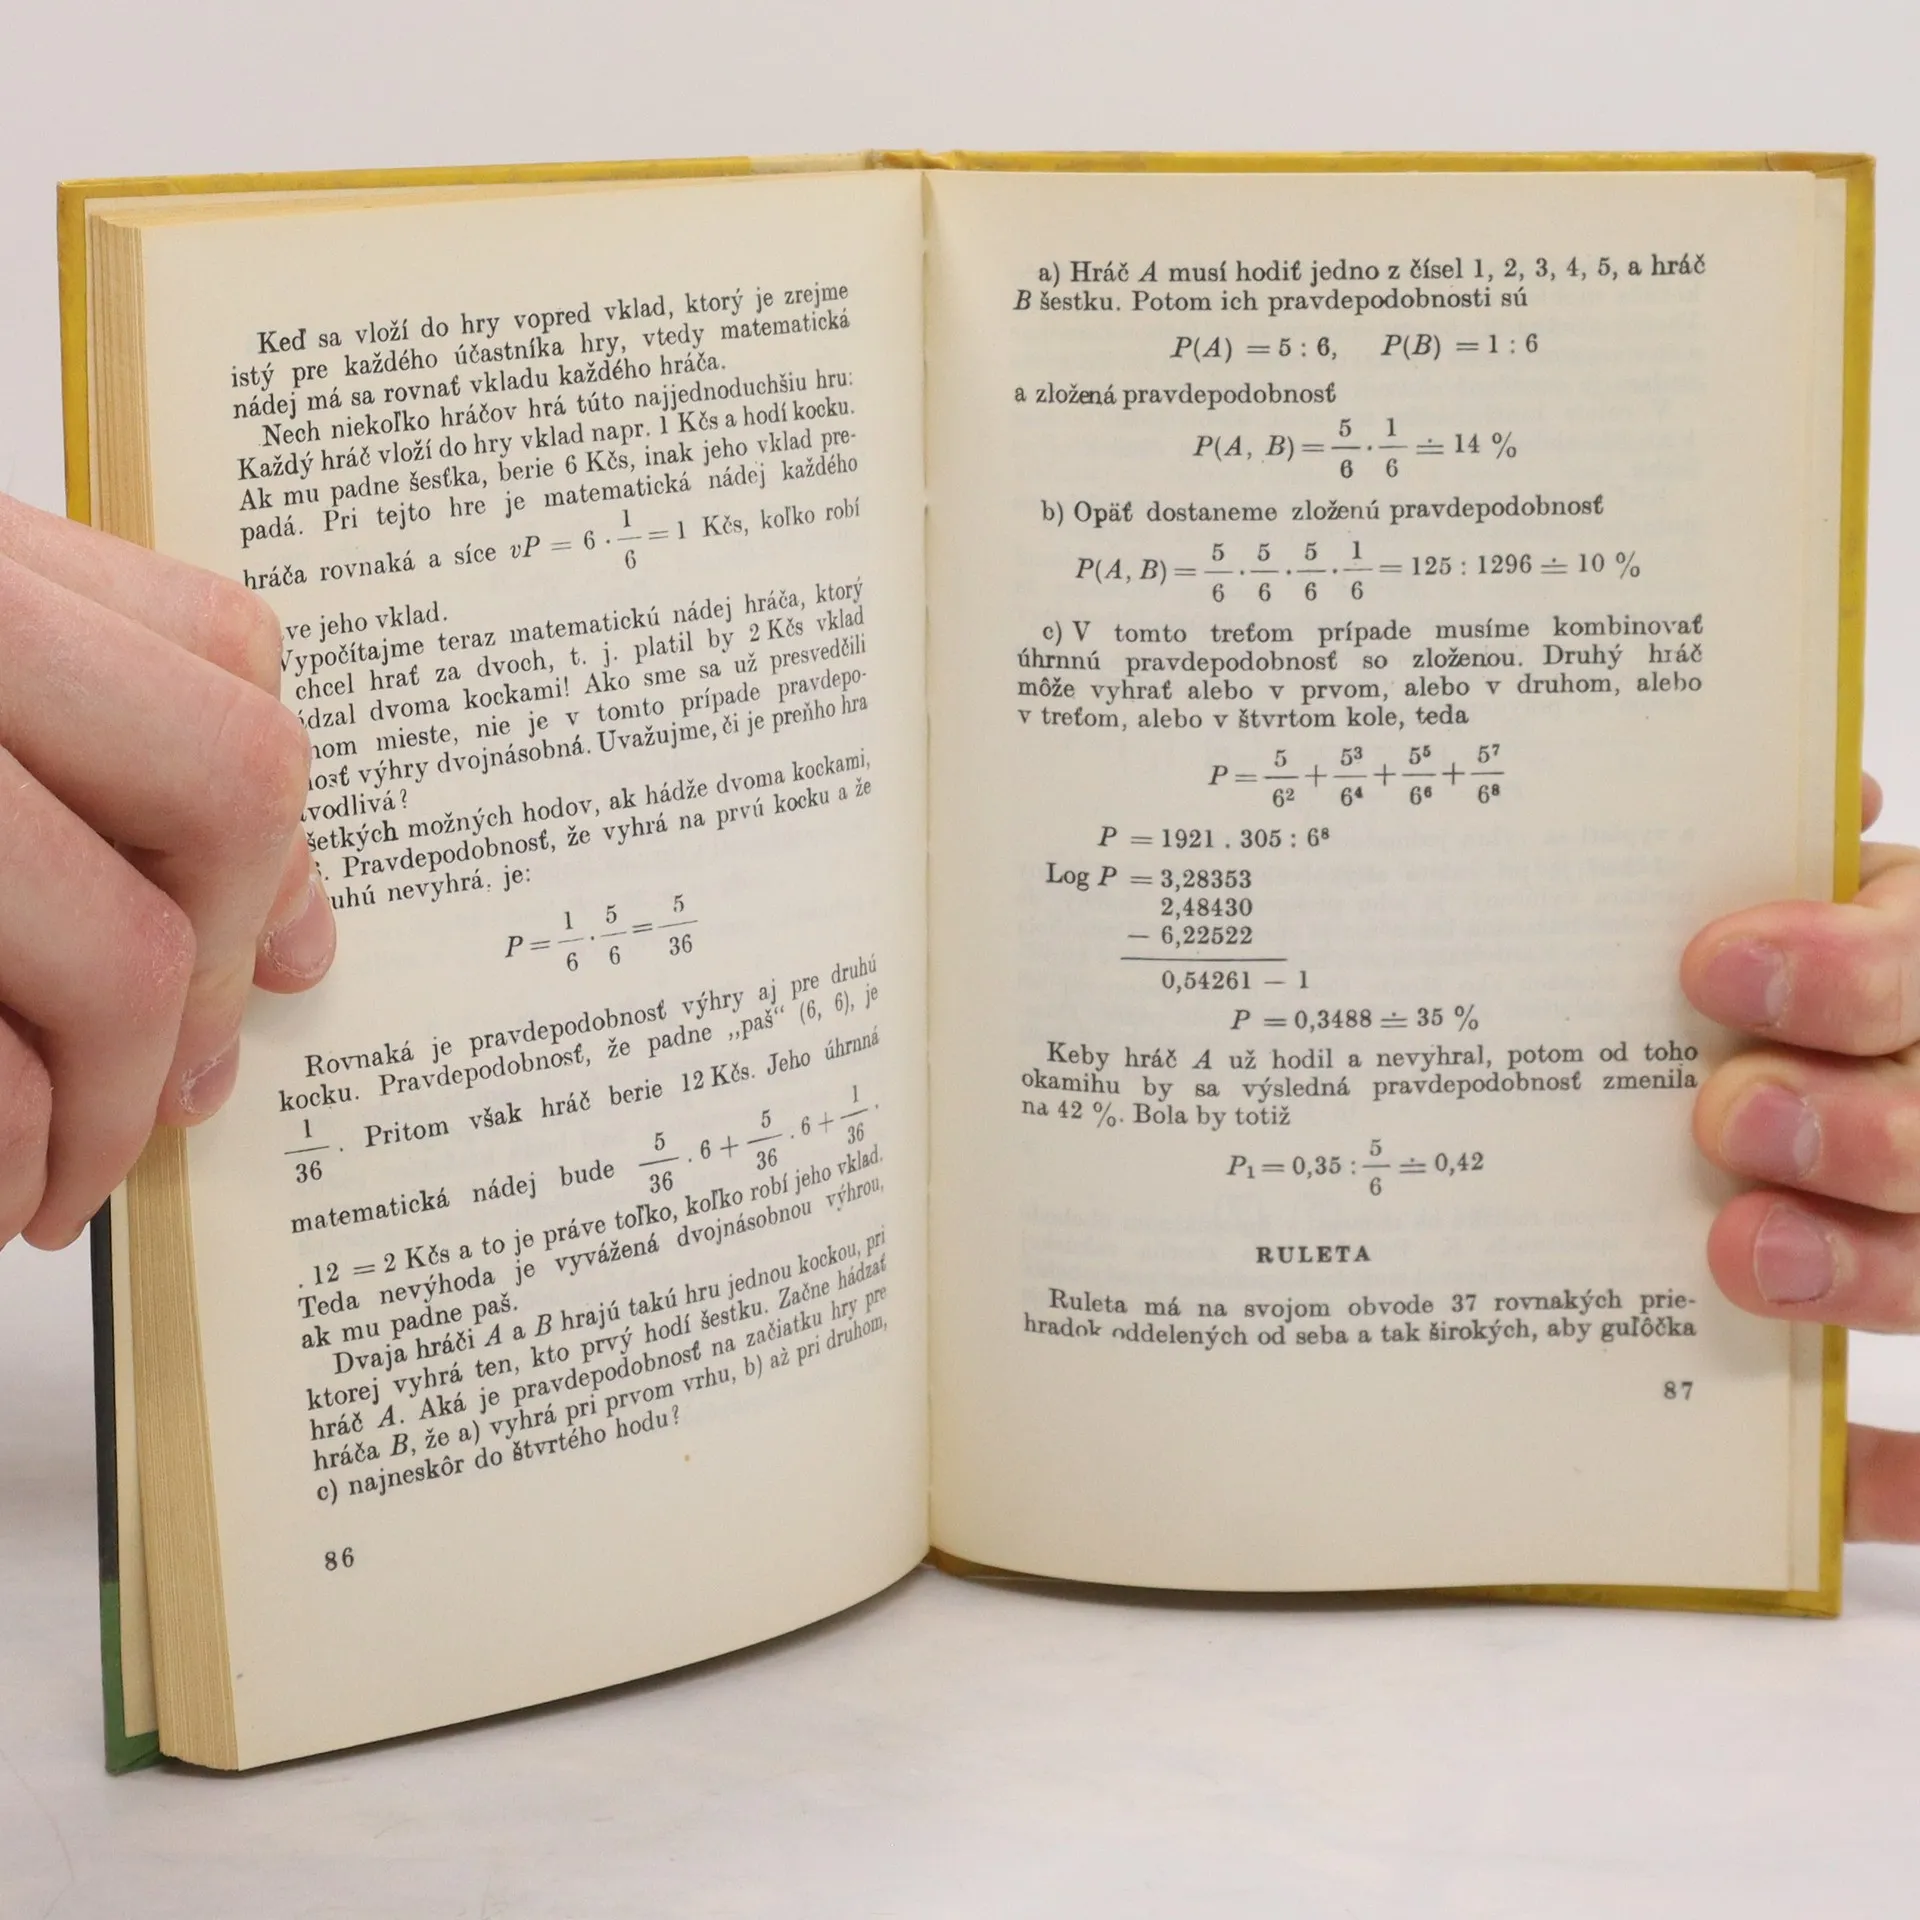 Keď sa vloží do hry vopred vklad, ktorý je zrejme
istý pre každého účastníka hry, vtedy matematická
nádej má sa rovnať vkladu každého hráča.
Nech niekoľko hráčov hrá túto najjednoduchšiu hru:
Každý hráč vloží do hry vklad napr. 1 Kčs a hodí kocku.
Ak mu padne šesťka, berie 6 Kčs, inak jeho vklad pre-
padá. Pri tejto hre je matematická nádej každého
hráča rovnaká a síce vP = 6 . 1/6 = 1 Kčs, koľko robí
ve jeho vklad.
Vypočítajme teraz matematickú nádej hráča, ktorý
chcel hrať za dvoch, t. j. platil by 2 Kčs vklad
dzal dvoma kockami! Ako sme sa už presvedčili
nom mieste, nie je v tomto prípade pravdepo-
nosť výhry dvojnásobná. Uvažujme, či je preňho hra
vodlivá?
šetkých možných hodov, ak hádže dvoma kockami,
. Pravdepodobnosť, že vyhrá na prvú kocku a že
uhú nevyhrá, je:
P = 1/6 . 5/6 = 5/36
Rovnaká je pravdepodobnosť výhry aj pre druhú
kocku. Pravdepodobnosť, že padne „paš“ (6, 6), je
1/36. Pritom však hráč berie 12 Kčs. Jeho úhrnná
matematická nádej bude 5/36 . 6 + 5/36 . 6 + 1/36 .
. 12 = 2 Kčs a to je práve toľko, koľko robí jeho vklad.
Teda nevýhoda je vyvážená dvojnásobnou výhrou,
ak mu padne paš.
Dvaja hráči A a B hrajú takú hru jednou kockou, pri
ktorej vyhrá ten, kto prvý hodí šestku. Začne hádzať
hráč A. Aká je pravdepodobnosť na začiatku hry pre
hráča B, že a) vyhrá pri prvom vrhu, b) až pri druhom,
c) najneskôr do štvrtého hodu?
86
a) Hráč A musí hodiť jedno z čísel 1, 2, 3, 4, 5, a hráč
B šestku. Potom ich pravdepodobnosti sú
P(A) = 5 : 6, P(B) = 1 : 6
a zložená pravdepodobnosť
P(A, B) = 5/6 . 1/6 ≐ 14 %
b) Opäť dostaneme zloženú pravdepodobnosť
P(A, B) = 5/6 . 5/6 . 5/6 . 1/6 = 125 : 1296 ≐ 10 %
c) V tomto treťom prípade musíme kombinovať
úhrnnú pravdepodobnosť so zloženou. Druhý hráč
môže vyhrať alebo v prvom, alebo v druhom, alebo
v treťom, alebo v štvrtom kole, teda
P = 5/6² + 5³/6⁴ + 5⁵/6⁶ + 5⁷/6⁸
P = 1921 . 305 : 6⁸
Log P = 3,28353
2,48430
— 6,22522
0,54261 — 1
P = 0,3488 ≐ 35 %
Keby hráč A už hodil a nevyhral, potom od toho
okamihu by sa výsledná pravdepodobnosť zmenila
na 42 %. Bola by totiž
P₁ = 0,35 : 5/6 ≐ 0,42
RULETA
Ruleta má na svojom obvode 37 rovnakých prie-
hradok oddelených od seba a tak širokých, aby guľôčka
87